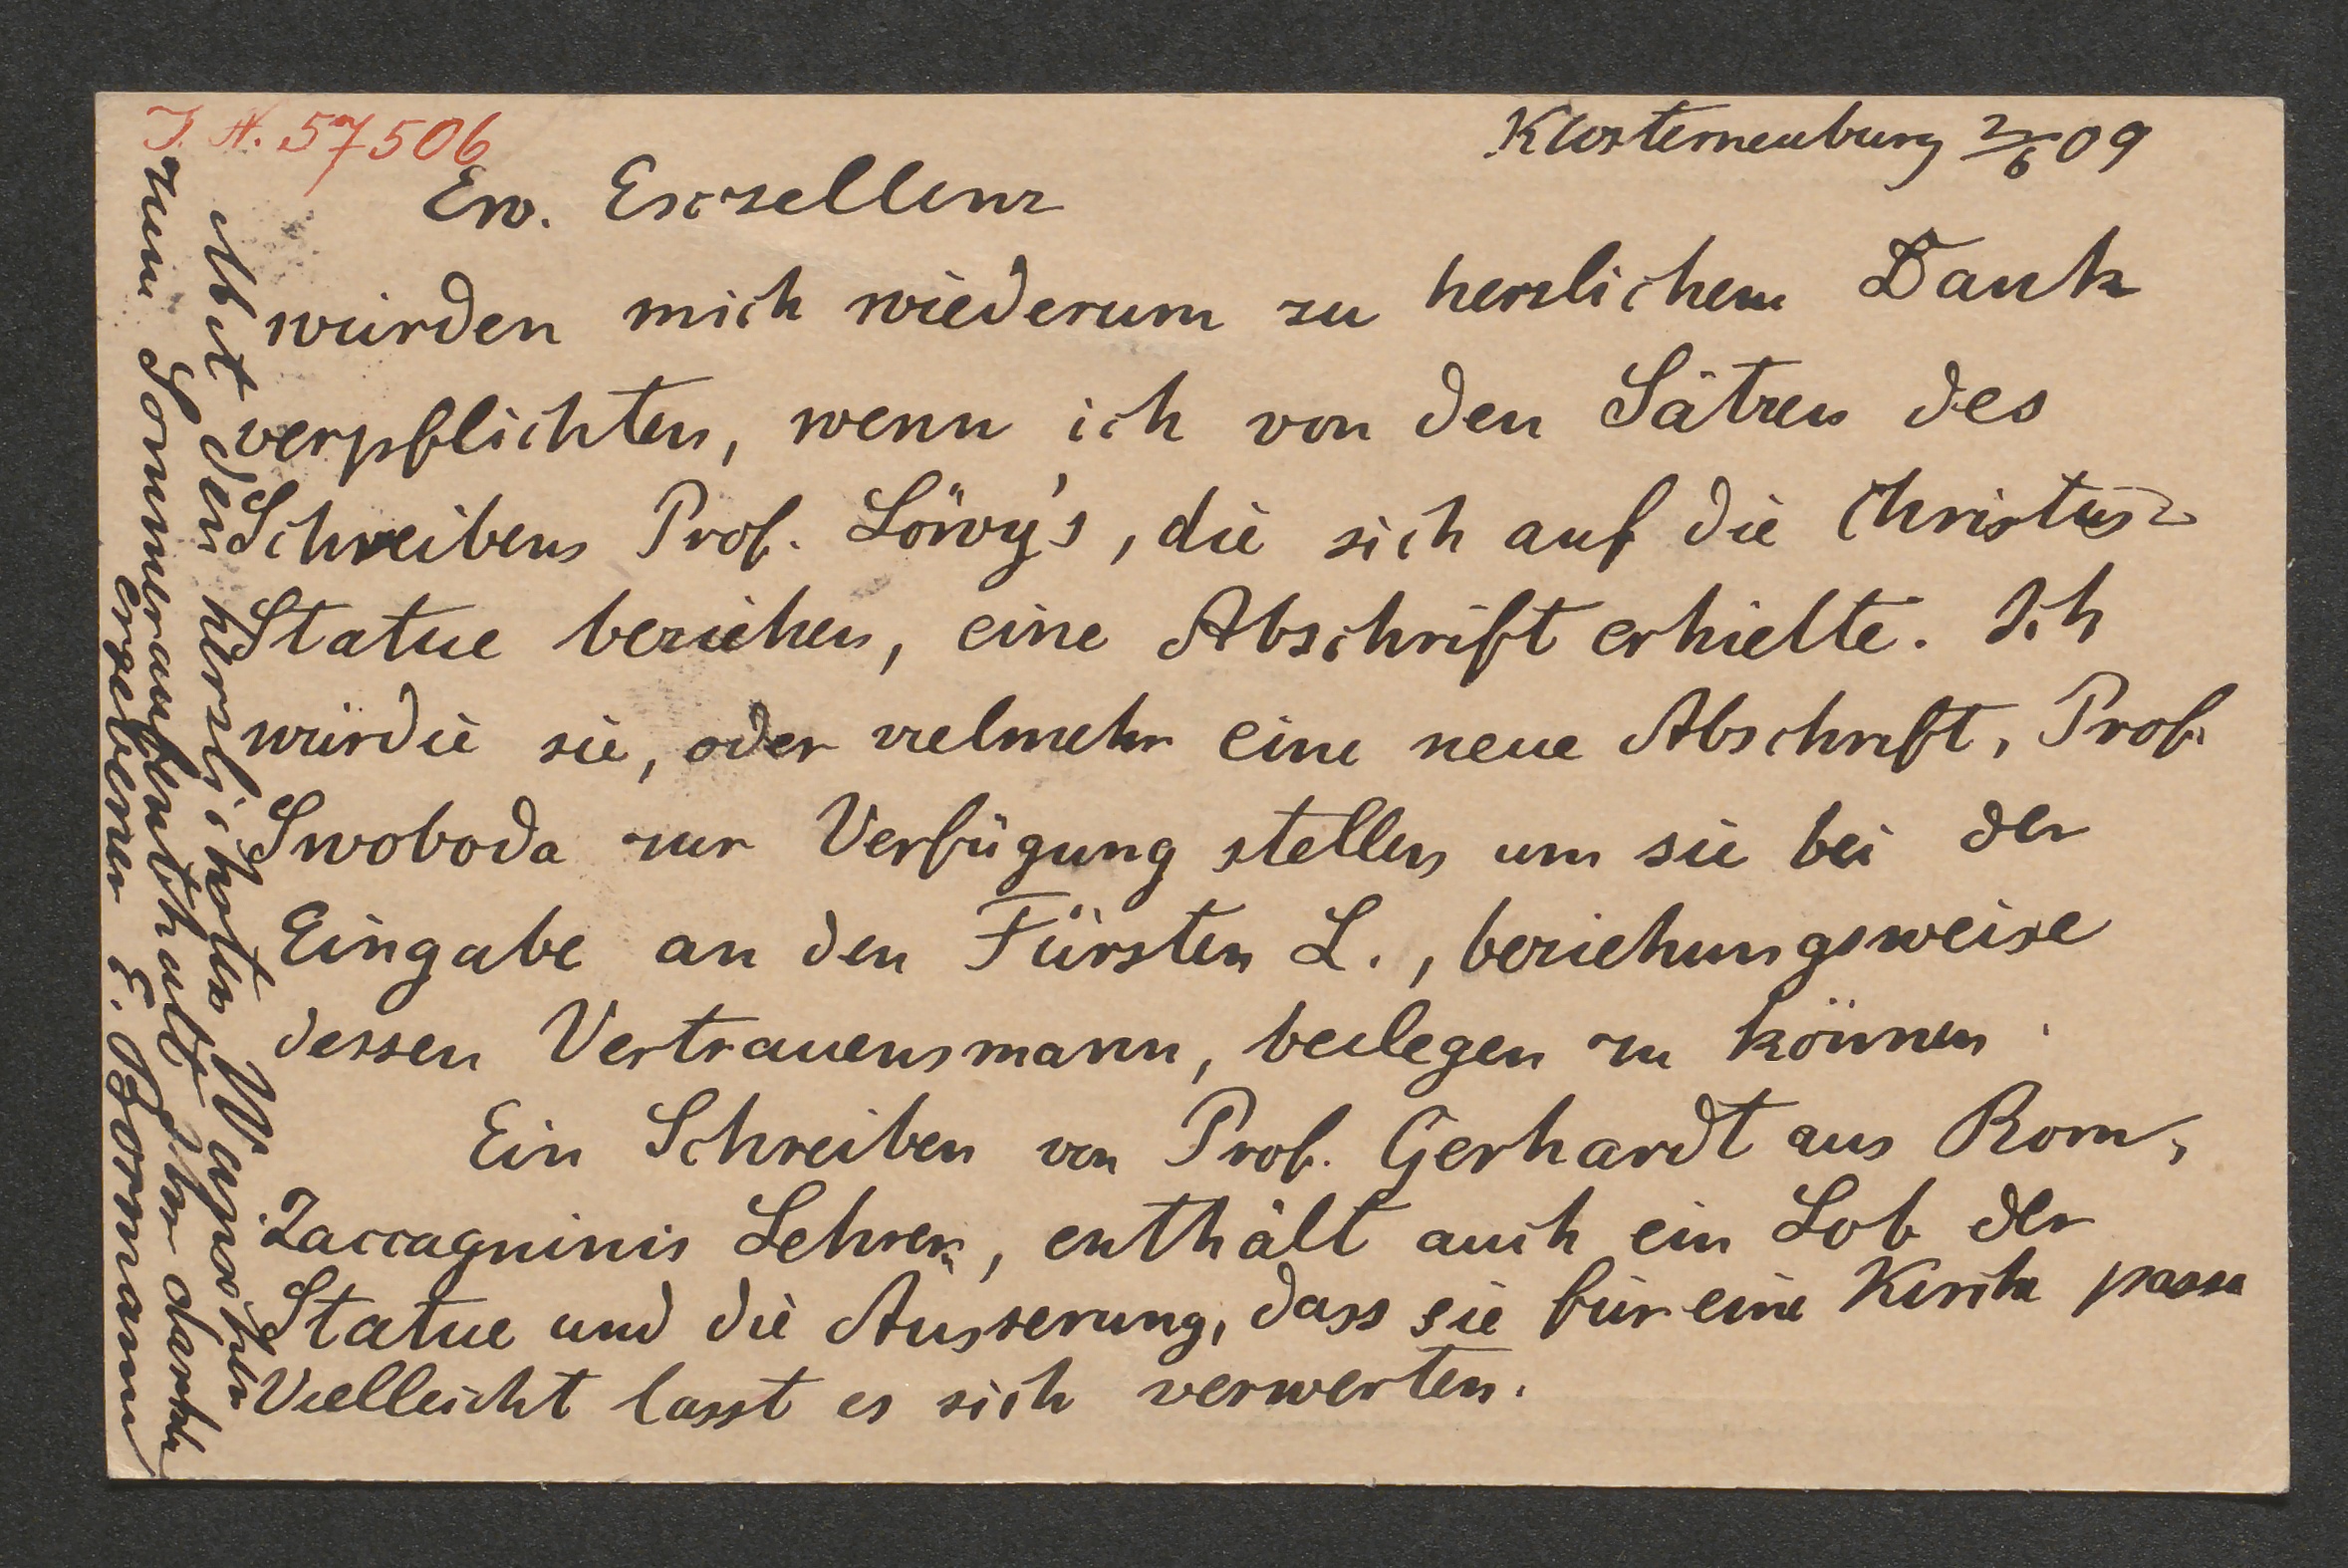 I. N. 57506
Klosterneuburg 2/6 09
Ew. Exzellenz
würden mich wiederum zu herzlichem Dank
verpflichten, wenn ich von den Sätzen des
Schreibens Prof. Löwy's, die sich auf die Christus-
Statue beziehen, eine Abschrift erhielte. Ich
würde sie, oder vielmehr eine neue Abschrift, Prof.
Swoboda zur Verfügung stellen um sie bei der
Eingabe an den Fürsten L., beziehungsweise
dessen Vertrauensmann, beilegen zu können.
Ein Schreiben von Prof. Gerhardt aus Rom,
Zaccagninis Lehrer, enthält auch ein Lob der
Statue und die Äusserung, dass sie für eine Kirche passe
Vielleicht lasst es sich verwerten.
Mit den herzlichsten Wünschen
zum Sommeraufenthalt Ihr dankb
ergebener E. Bormann